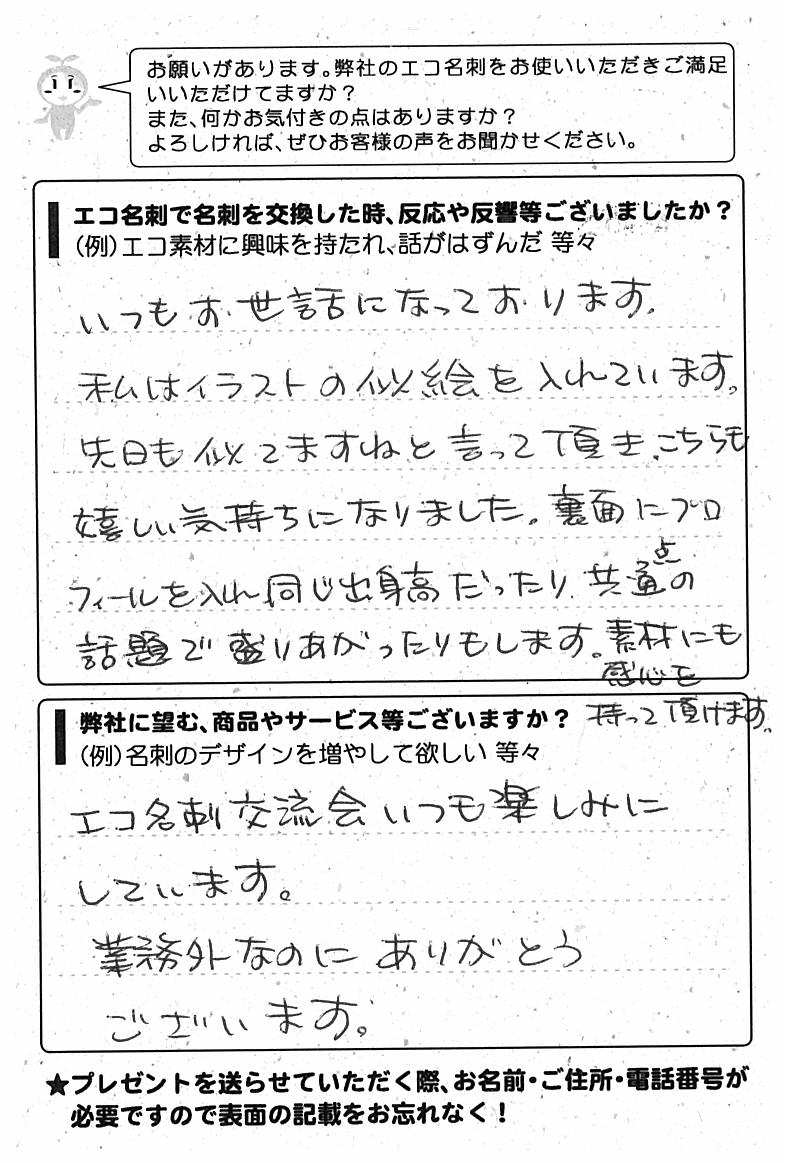 お願いがあります。弊社のエコ名刺をお使いいただきご満足
いいただけてますか？
また、何かお気付きの点はありますか？
よろしければ、ぜひお客様の声をお聞かせください。
エコ名刺で名刺を交換した時、反応や反響等ございましたか？
（例）エコ素材に興味を持たれ、話がはずんだ 等々
いつもお世話になっております。
私はイラストの似絵を入れています。
先日も似てますねと言って頂き、こちらも
嬉しい気持ちになりました。裏面にプロ
フィールを入れ同じ出身高だったり、共通点の
話題で盛りあがったりもします。素材にも
感心を
持って頂けます。
弊社に望む、商品やサービス等ございますか？
（例）名刺のデザインを増やして欲しい 等々
エコ名刺交流会いつも楽しみに
しています。
業務外なのにありがとう
ございます。
★プレゼントを送らせていただく際、お名前・ご住所・電話番号が
必要ですので表面の記載をお忘れなく！